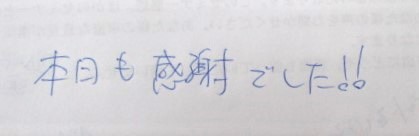 本日も感謝でした!!